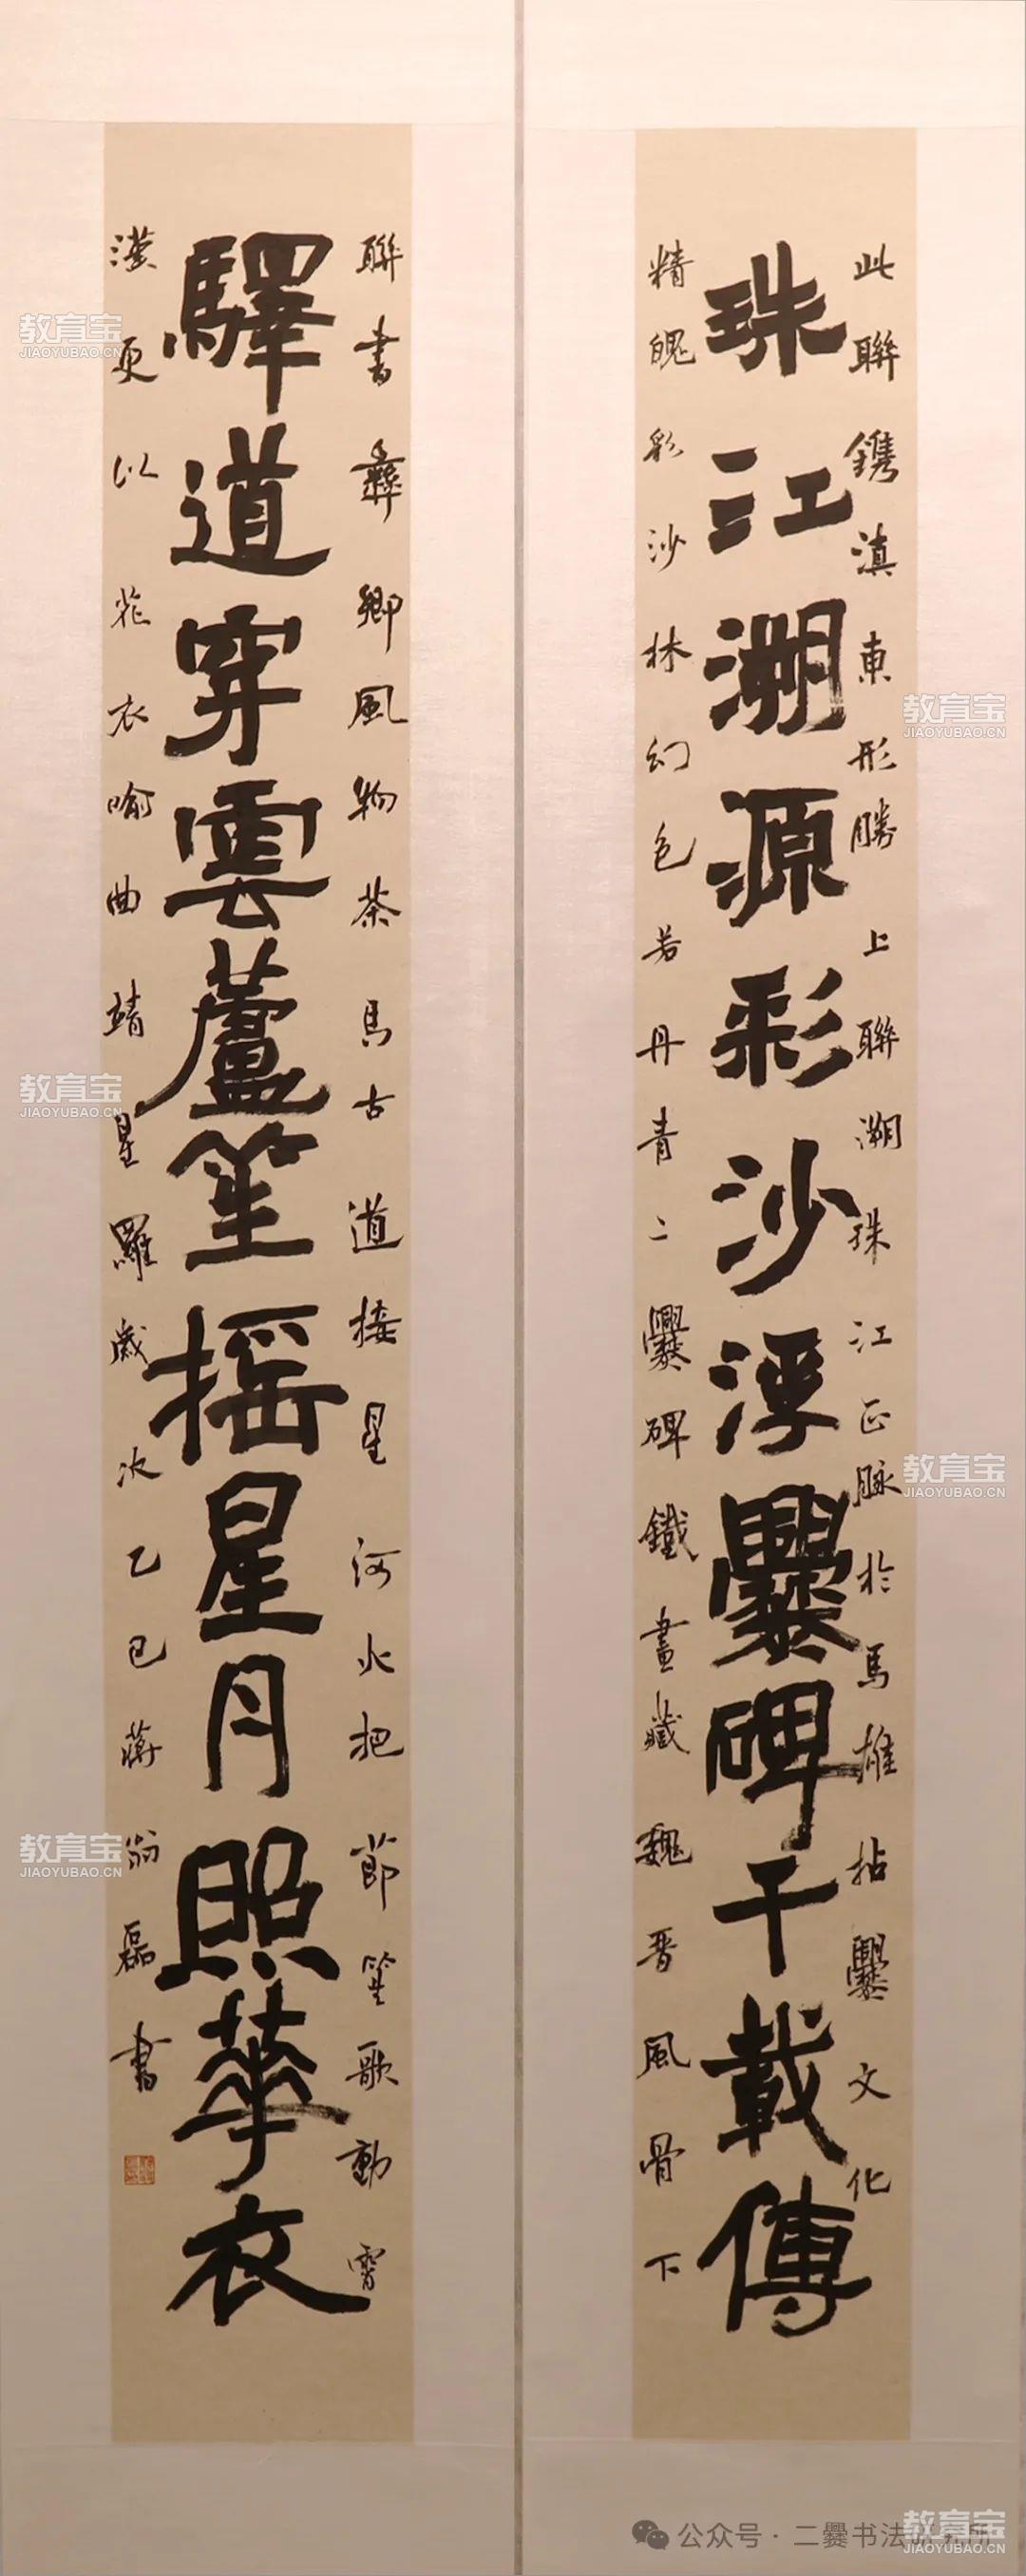 此聯鐫滇東形勝上聯溯珠江正脉於馬雄拈爨文化
珠江溯源彩沙浮爨碑千載傳
精魄彩沙林幻色若丹青二爨碑鐵畫藏魏晋風骨下
聯書彝鄉風物茶馬古道接星河火把節笙歌動霄
驛道穿雲蘆笙摇星月照華衣
漢更以花衣喻曲靖星羅歲次乙巳蔣翁磊書
教育宝
JIAOYUBAO.CN
教育宝
JIAOYUBAO.CN
教育宝
JIAOYUBAO.CN
教育宝
JIAOYUBAO.CN
教育宝
JIAOYUBAO.CN
公众号·二爨书法
教育宝
JIAOYUBAO.CN